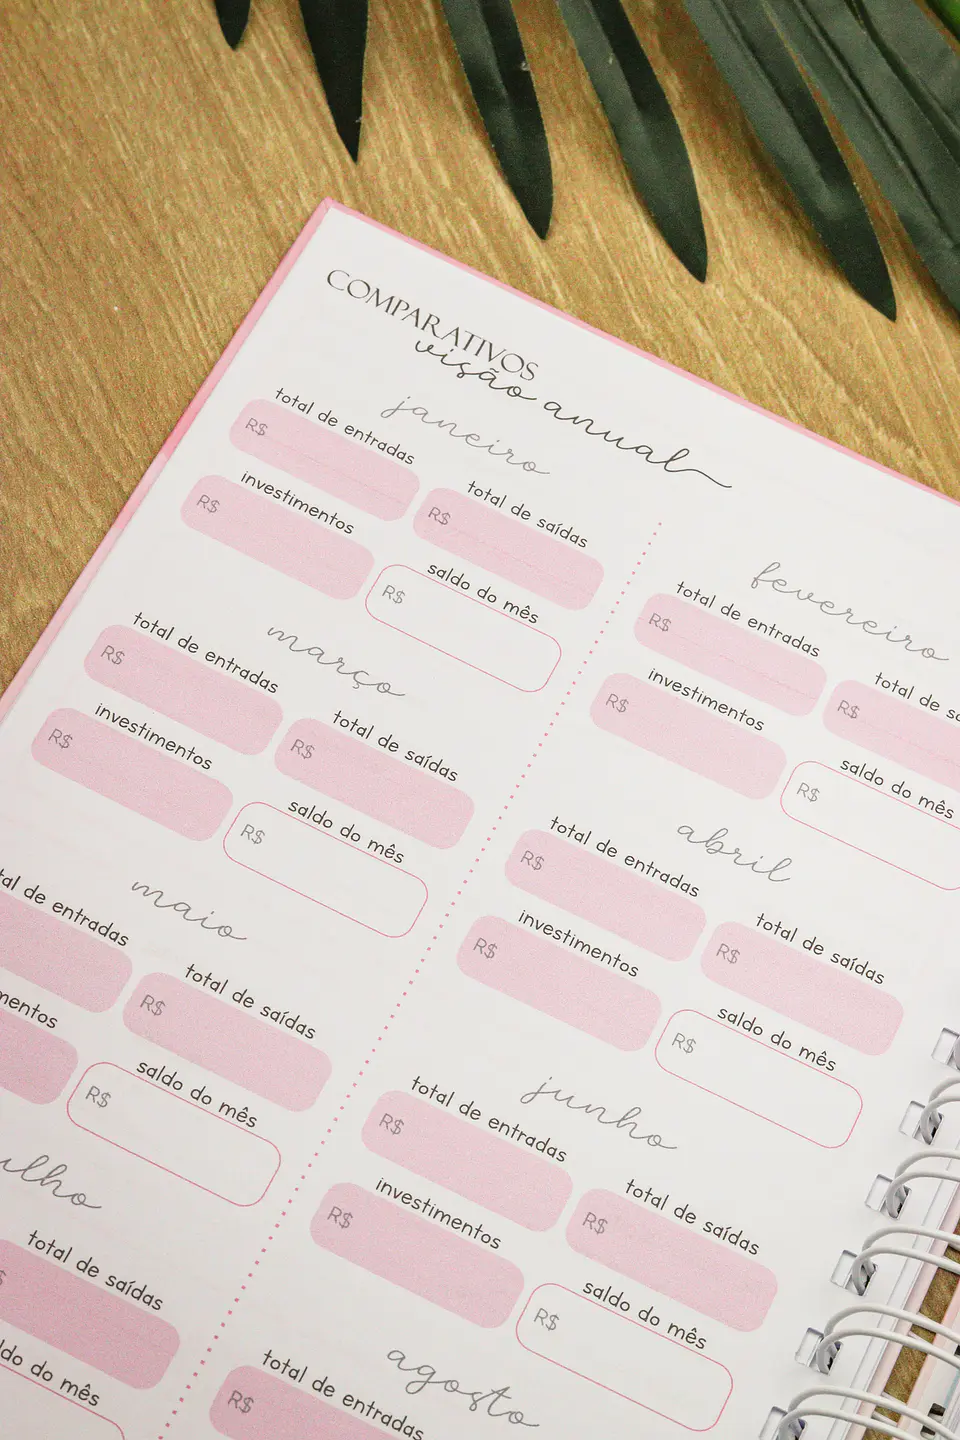 COMPARATIVOS
visão anual
janeiro
total de entradas
R$
total de saídas
R$
investimentos
R$
saldo do mês
R$
fevereiro
total de entradas
R$
total de
R$
investimentos
R$
saldo do mês
R$
março
total de entradas
R$
total de saídas
R$
investimentos
R$
saldo do mês
R$
abril
total de entradas
R$
total de saídas
R$
investimentos
R$
saldo do mês
R$
maio
de entradas
total de saídas
R$
saldo do mês
R$
junho
total de entradas
R$
total de saídas
R$
investimentos
R$
saldo do mês
R$
total de saídas
do mês
agosto
total de entradas
R$